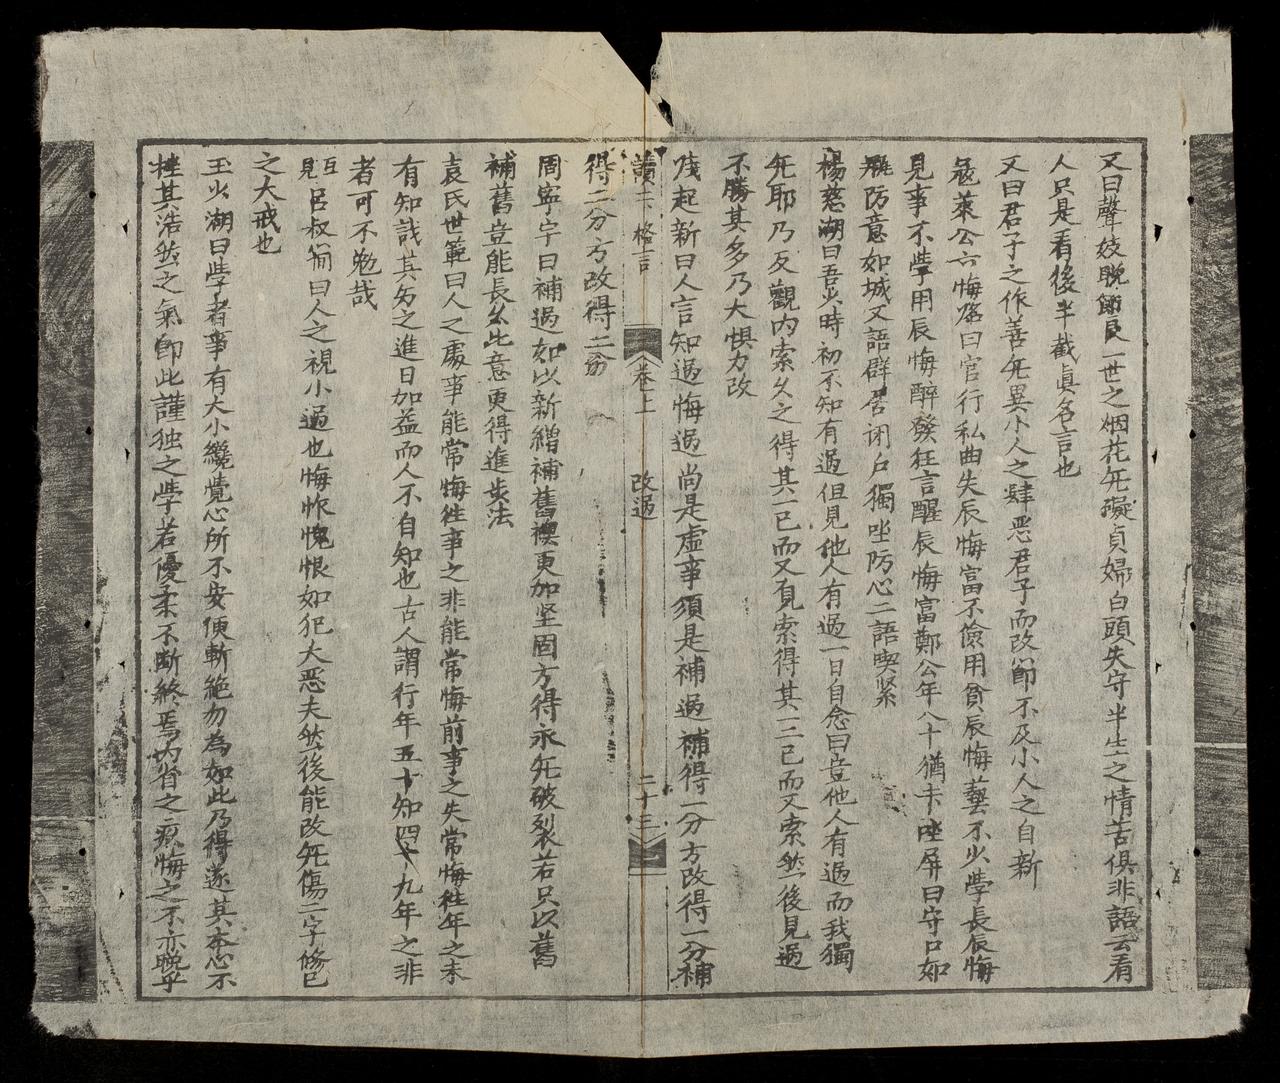 又曰聲妓晚節良一世之烟花旡礙貞婦白頭失守半生之情苦俱非語云看
人只是看後半截眞名言也
又曰君子之作善旡異小人之肆恶君子而改節不及小人之自新
冦萊公六悔銘曰官行私曲失辰悔富不儉用貧辰悔藝不少學長辰悔
見事不學用辰悔醉發狂言醒辰悔富鄭公年八十猶书座屏曰守口如
瓶防意如城又語辟居闭户獨坐防心二語喫紧
楊慈湖曰吾少時初不知有過但見他人有過一日自念曰豈他人有過而我獨
旡耶乃反觀内索久之得其一已而又覔索得其二三已而又索然後見過
不勝其多乃大惧力改
淺起新曰人言知過悔過尚是虚事须是補過補得一分方改得一分補
讀书格言 卷上 改過 二十三
得二分方改得二分
周寧宇曰補過如以新繒補舊襖更加坚固方得永旡破裂若只以舊
補舊豈能長久此意更得進步法
袁氏世範曰人之處事能常悔徃事之非能常悔前事之失常悔徃年之未
有知識其为之進日加益而人不自知也古人謂行年五十知四十九年之非
者可不勉哉
見 吕叔簡曰人之視小過也悔怍愧恨如犯大恶夫然後能改旡傷二字修己
之大戒也
王少湖曰学者事有大小纔覺心所不安便斬絶勿為如此乃得遂其本心不
挫其浩然之氣即此謹独之学若優柔不斷終焉内省之疚悔之不亦晚乎